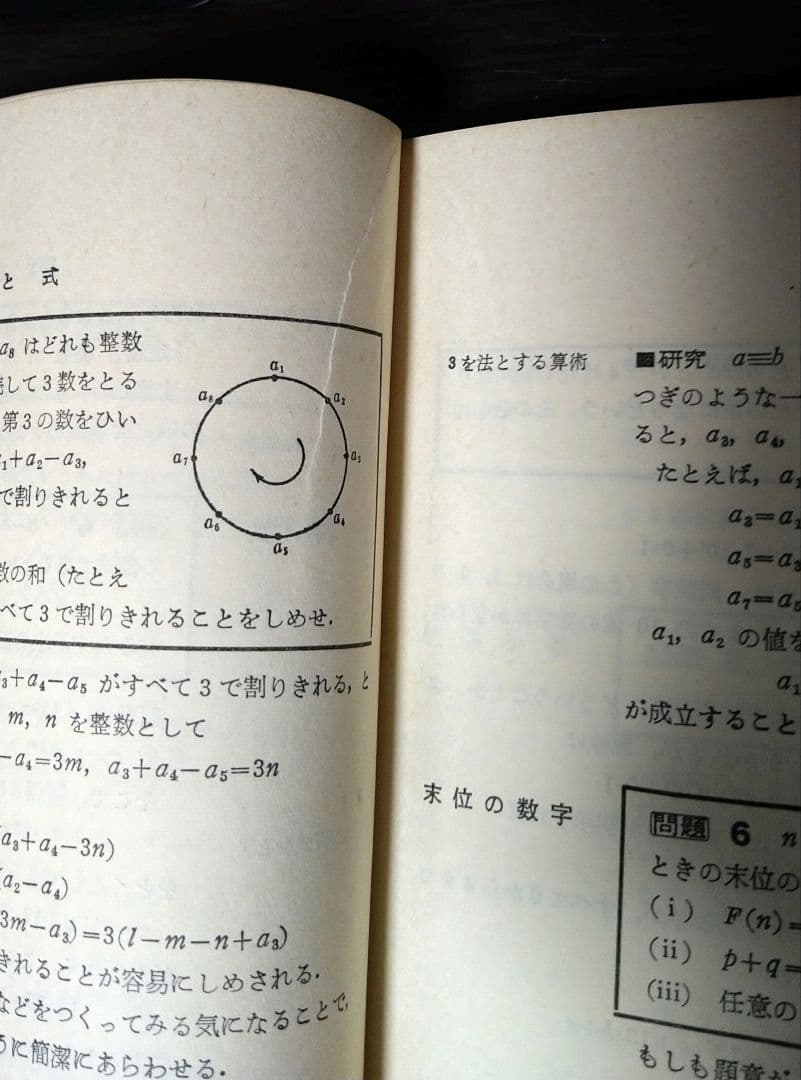 と 式
a₈ はどれも整数
して3数をとる
第3の数をひい
a₁+a₂−a₃,
で割りきれると
数の和（たとえ
べて3で割りきれることをしめせ.
a₁
a₂
a₃
a₄
a₅
a₆
a₇
a₈
a₃+a₄−a₅ がすべて3で割りきれる, と
m, n を整数として
−a₄=3m, a₃+a₄−a₅=3n
(a₃+a₄−3n)
(a₂−a₄)
3m−a₃)=3(l−m−n+a₃)
きれることが容易にしめされる.
などをつくってみる気になることで,
うに簡潔にあらわせる.
3を法とする算術
研究 a≡b
つぎのような一
ると, a₃, a₄,
たとえば, a₁
a₃=a₁
a₅=a₃
a₇=a₅
a₁, a₂ の値を
a₁
が成立すること
末位の数字
問題 6 n
ときの末位の
(i) F(n)=
(ii) p+q=
(iii) 任意の
もしも題意が